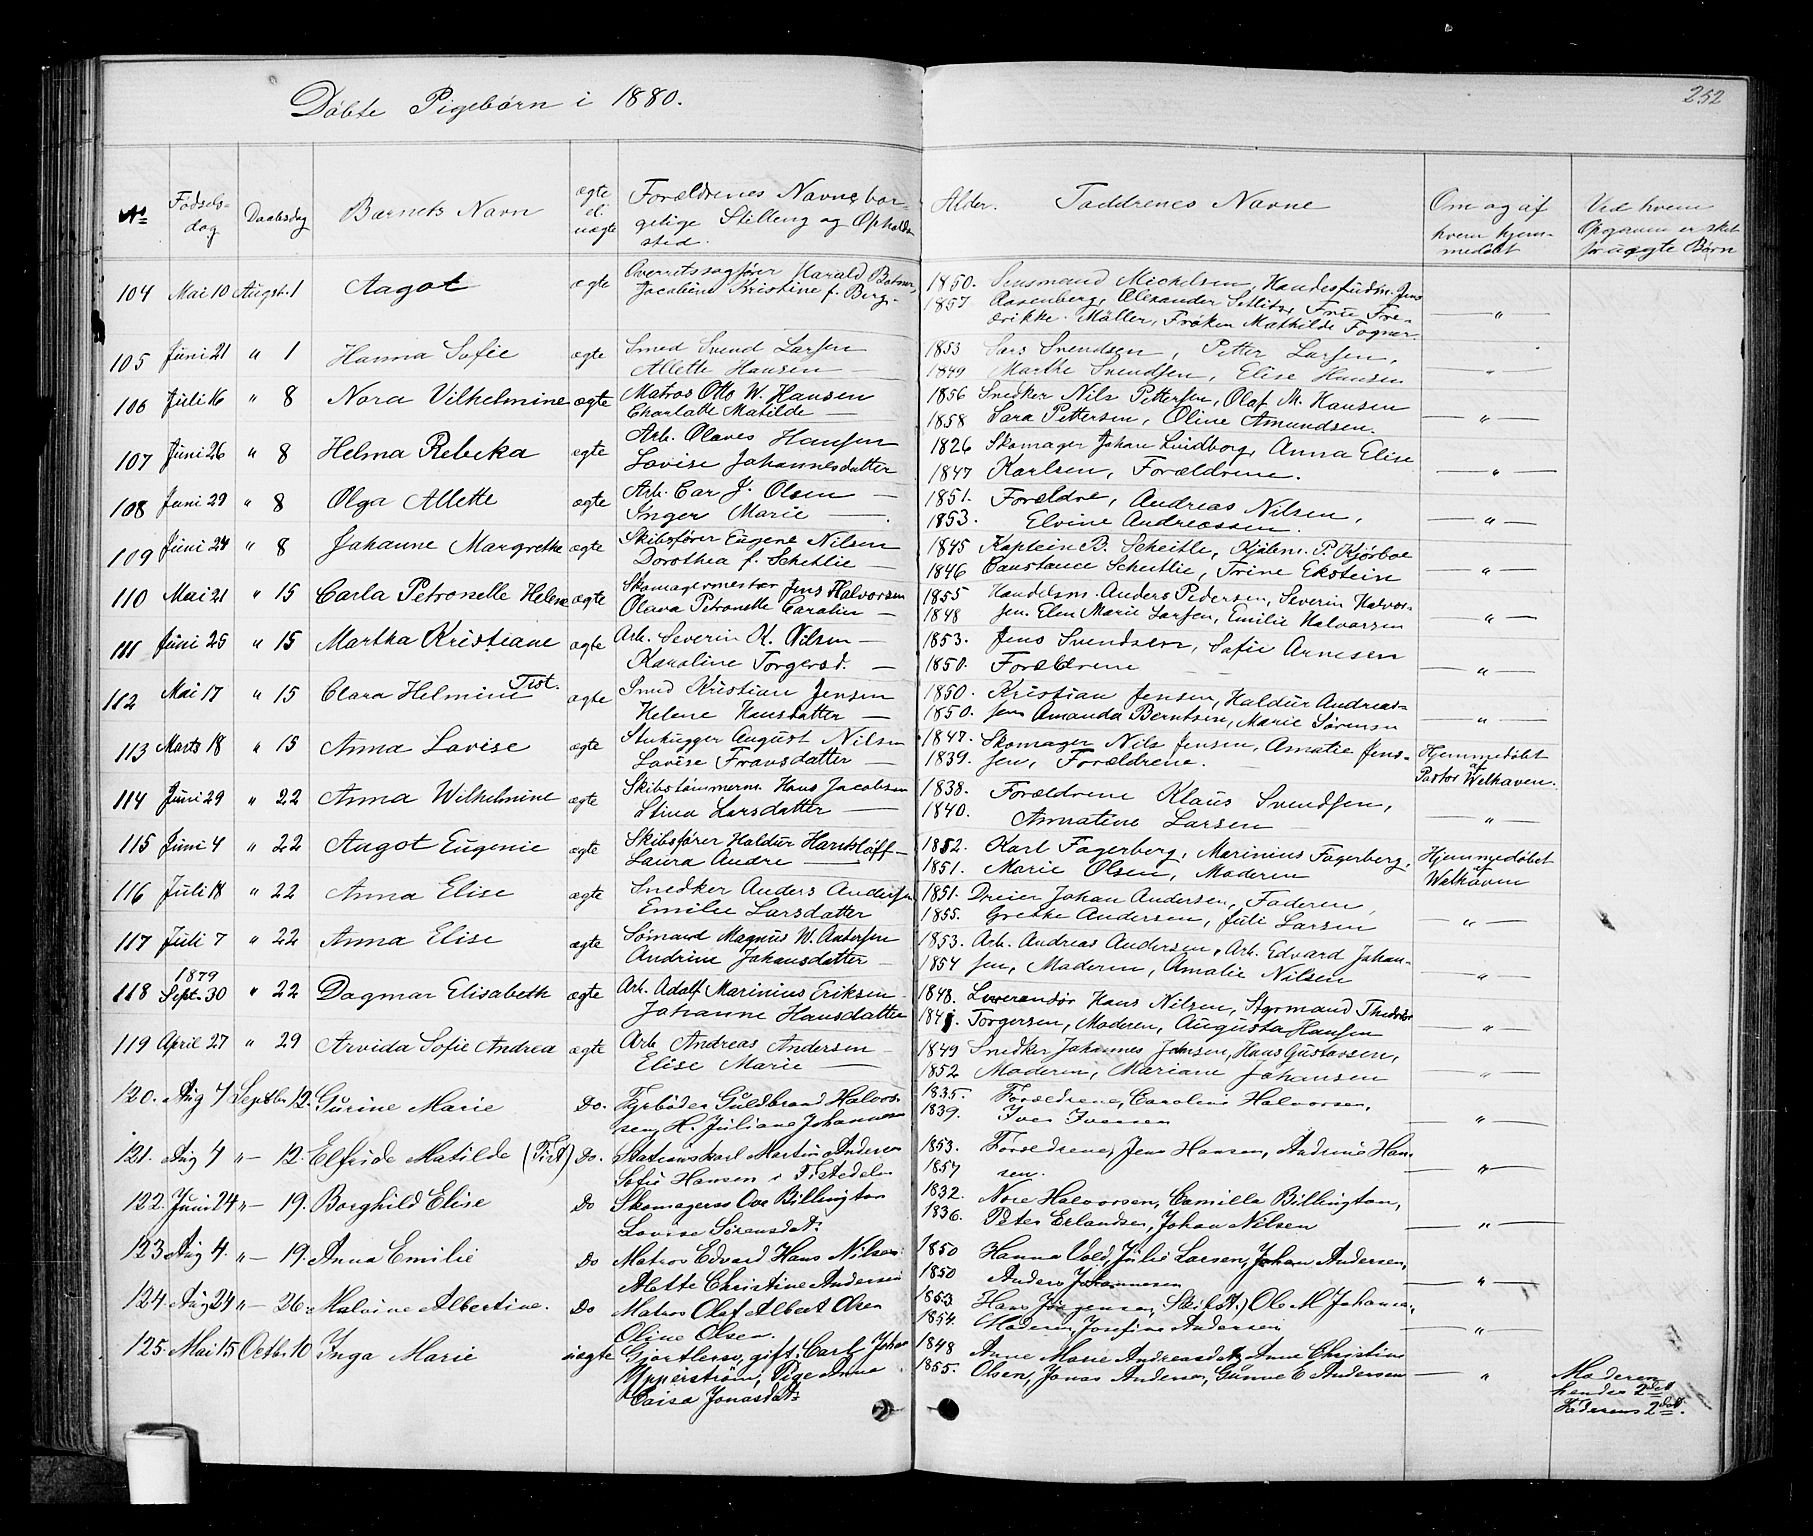 Døbte Pigebørn i 1880.
252
№ Fødselsdag Daabsdag Barnets Navn ægte el. uægte Forældrenes Navne, borgelige Stilling og Opholdssted. Alder. Faddrenes Navne Om og af hvem hjemmedøbt Ved hvem Opgaven er sket for uægte Børn
104 Mai 10 August 1 Aagot ægte Overretssagfører Harald 1850. Michelsen,
Jacobine Kristine f. Berg. 1857 Aasenberg, Alexander Frue Fre-
drikke Møller, Frøken Mathilde Fogner — " —
105 Juni 21 " 1 Hanna Sofie ægte Smed Svend Larsen 1853 Lars Svendsen, Petter Larsen,
Allette Hansen — 1849 Marthe Svendsen, Elise Hansen — " —
106 Juli 16 " 8 Nora Vilhelmine ægte Matros Otto W. Hansen 1856 Snedker Nils Pettersen, Olaf M. Hansen
Charlotte Matilde — 1858 Sara Pettersen, Oline Amundsen. — " —
107 Juni 26 " 8 Helma Rebeka ægte Arb. Olaves Hansen 1826 Skomager Johan Lindborg, Anna Elise
Lovise Johannesdatter 1847 Karlsen, Forældrene. — " —
108 Juni 29 " 8 Olga Allette ægte Arb. Car J. Olsen — 1851. Forældre, Andreas Nilsen,
Inger Marie — 1853. Elvine Andreassen. — " —
109 Juni 24 " 8 Johanne Margrethe ægte Skibsfører Eugene Nilsen 1845 Kaptein B. Scheitle, Kjøbm. P. Kjørboe
Dorothea f. Schetlie — 1846 Constance Scheitlie, Trine Ekstein — " —
110 Mai 21 " 15 Carla Petronelle Helene ægte Skomagermester Jens Halvorsen 1855 Handelsm. Anders Pedersen, Severin Halvor-
Olava Petronelle Carolin — 1848 sen. Elen Marie Larsen, Emilie Halvorsen — " —
111 Juni 25 " 15 Martha Kristiane ægte Arb. Severin K. Nilsen — 1853. Jens Svendsen, Sofie Arnesen
Karoline Torgersd. — 1850. Forældrene — " —
112 Mai 17 " 15 Clara Helmine Tist. ægte Smed Kristian Jensen 1850. Kristian Jensen, Haldur Andreas-
Helene Hansdatter — 1850. sen Amanda Berntsen, Marie Sørensn — " —
113 Marts 18 " 15 Anna Lovise ægte Stenhugger August Nilsen 1847. Skomager Nils Jensen, Amatie Jens- Hjemmedøbt af
Lovise Fransdatter — 1839. sen, Forældrene. Pastor Welhaven.
114 Juni 29 " 22 Anna Wilhelmine ægte Skibstømmerm. Hans Jacobsen 1838. Forældrene Klaus Svendsen,
Stina Larsdatter — 1840. Annatine Larsen — " —
115 Juni 4 " 22 Augot Eugenie ægte Skibsfører Haldur Hanskløff — 1852. Karl Fagerberg, Marinius Fagerberg, Hjemmedøbt af
Laura Andre — 1851. Marie Olsen, Moderen Welhaven
116 Juli 18 " 22 Anna Elise ægte Snedker Anders Andersen 1851. Dreier Johan Andersen, Faderen,
Emilie Larsdatter 1855. Grethe Andersen, Juli Larsen — " —
117 Juli 7 " 22 Anna Elise ægte Sømand Magnus W. Antorsen 1853. Arb. Andreas Andersen, Arb. Edvard Johan-
Andrine Johansdatter — 1854 sen, Moderen, Amalie Nilsen — " —
118 1879 Sept. 30 " 22 Dagmar Elisabeth ægte Arb. Adolf Marinius Eriksen 1848. Leverandør Hans Nilsen, Styrmand Theodor
Johanne Hansdatter 184 Torgersen, Moderen, Augusta Hansen — " —
119 April 27 " 29 Arvida Sofie Andrea ægte Arb Andreas Andersen 1849 Snedker Johannes Jensen, Hans Gustavsen,
Elise Marie — 1852 Moderen, Mariane Johansen — " —
120. Aug 4 Septbr 12. Gurine Marie Do. Fyrbøder Guldbrand Halvor- 1835. Forældrene, Caroline Halvorsen,
sen, H. Juliane Johannesen 1839. Iver Iversen — " —
121. Aug 4 " — 12. Elfride Matilde (Tist) Do. Stationskarl Martin Andersen 1853. Forældrene, Jens Hansen, Andrine Han-
Sofie Hansen i Tistedalen 1857 sen. — " —
122. Juni 24 " — 19. Borghild Elise Do Skomagersv Ove Billington 1832. Nore Halvorsen, Camilla Billington,
Lovise Sørensdat. 1836. Peter Erlandsen, Johan Nilsen — " —
123 Aug 4. " — 19. Anna Emilie Do Matros Edvard Hans Nilsen 1850 Hanna Vold, Julie Larsen, Johan Andersen,
Alette Christine Andersen 1850 Anders Johannesen — " —
124. Aug 24 " — 26. Malvine Albertine. Do Matros Olaf Albert Olsen 1853 Hans Jørgensen, Ole M Johansen,
Oline Olsen. 1854. Moderen, Josefine Andersen — " —
125. Mai 15 Octbr. 10 Inga Marie uægte Gjørtlersv, gift. Carl Johan 1848 Anne Marie Andreasdat, Anne Christine
Upperstrøm, Pige Anne 1855. Olsen, Jonas Andersen, Gunne E Andersen — " — Moderen
Caisa Jonasdat. hendes 2det
Faderens 2det.